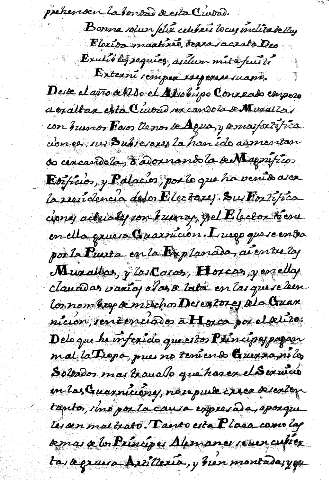 prehenden la bondad de esta Ciudad.
Bonna solum felix celebris locus inclita tellus
Florida martirio, terra sacrata Deo
Exulib. requies, asilum mite fuisti
Externi semper
Desde el año de el Arzobispo Conrado empezo
a exaltar esta Ciudad cercandola de Murallas
con buenos Fosos llenos de Agua, y demas fortifica
ciones, sus Subcesores la han ido aumentan
do cercandola, y adornandola de Magnificos
Edificios, y Palacios, por lo que ha venido a ser
la residencia de los Electores. Sus Fortifica
ciones actuales son buenas, y el Elector tiene
en ella gruesa Guarnicion. Luego que se entra
por la Puerta en la Explanada, ai entre las
Murallas, y las Casas, Horcas, y en ellas
clavadas varias ojas de lata en las que se leen
los nombres de muchos Desertores de la Guar
nicion, sentenciados a Horca por el delito:
De lo que he inferido que estos Principes pagan
mal la Tropa, pues no teniendo Guerra, ni los
Soldados mas travajo que hacer el Servicio
en las Guarniciones, no se puede creer deserten
tanto, sino por la causa expresada, o porque
les den mal trato. Tanto esta Plaza como las
demas de los Principes Alemanes se ven cubier
tas de gruesa Artilleria, y bien montadas, y que